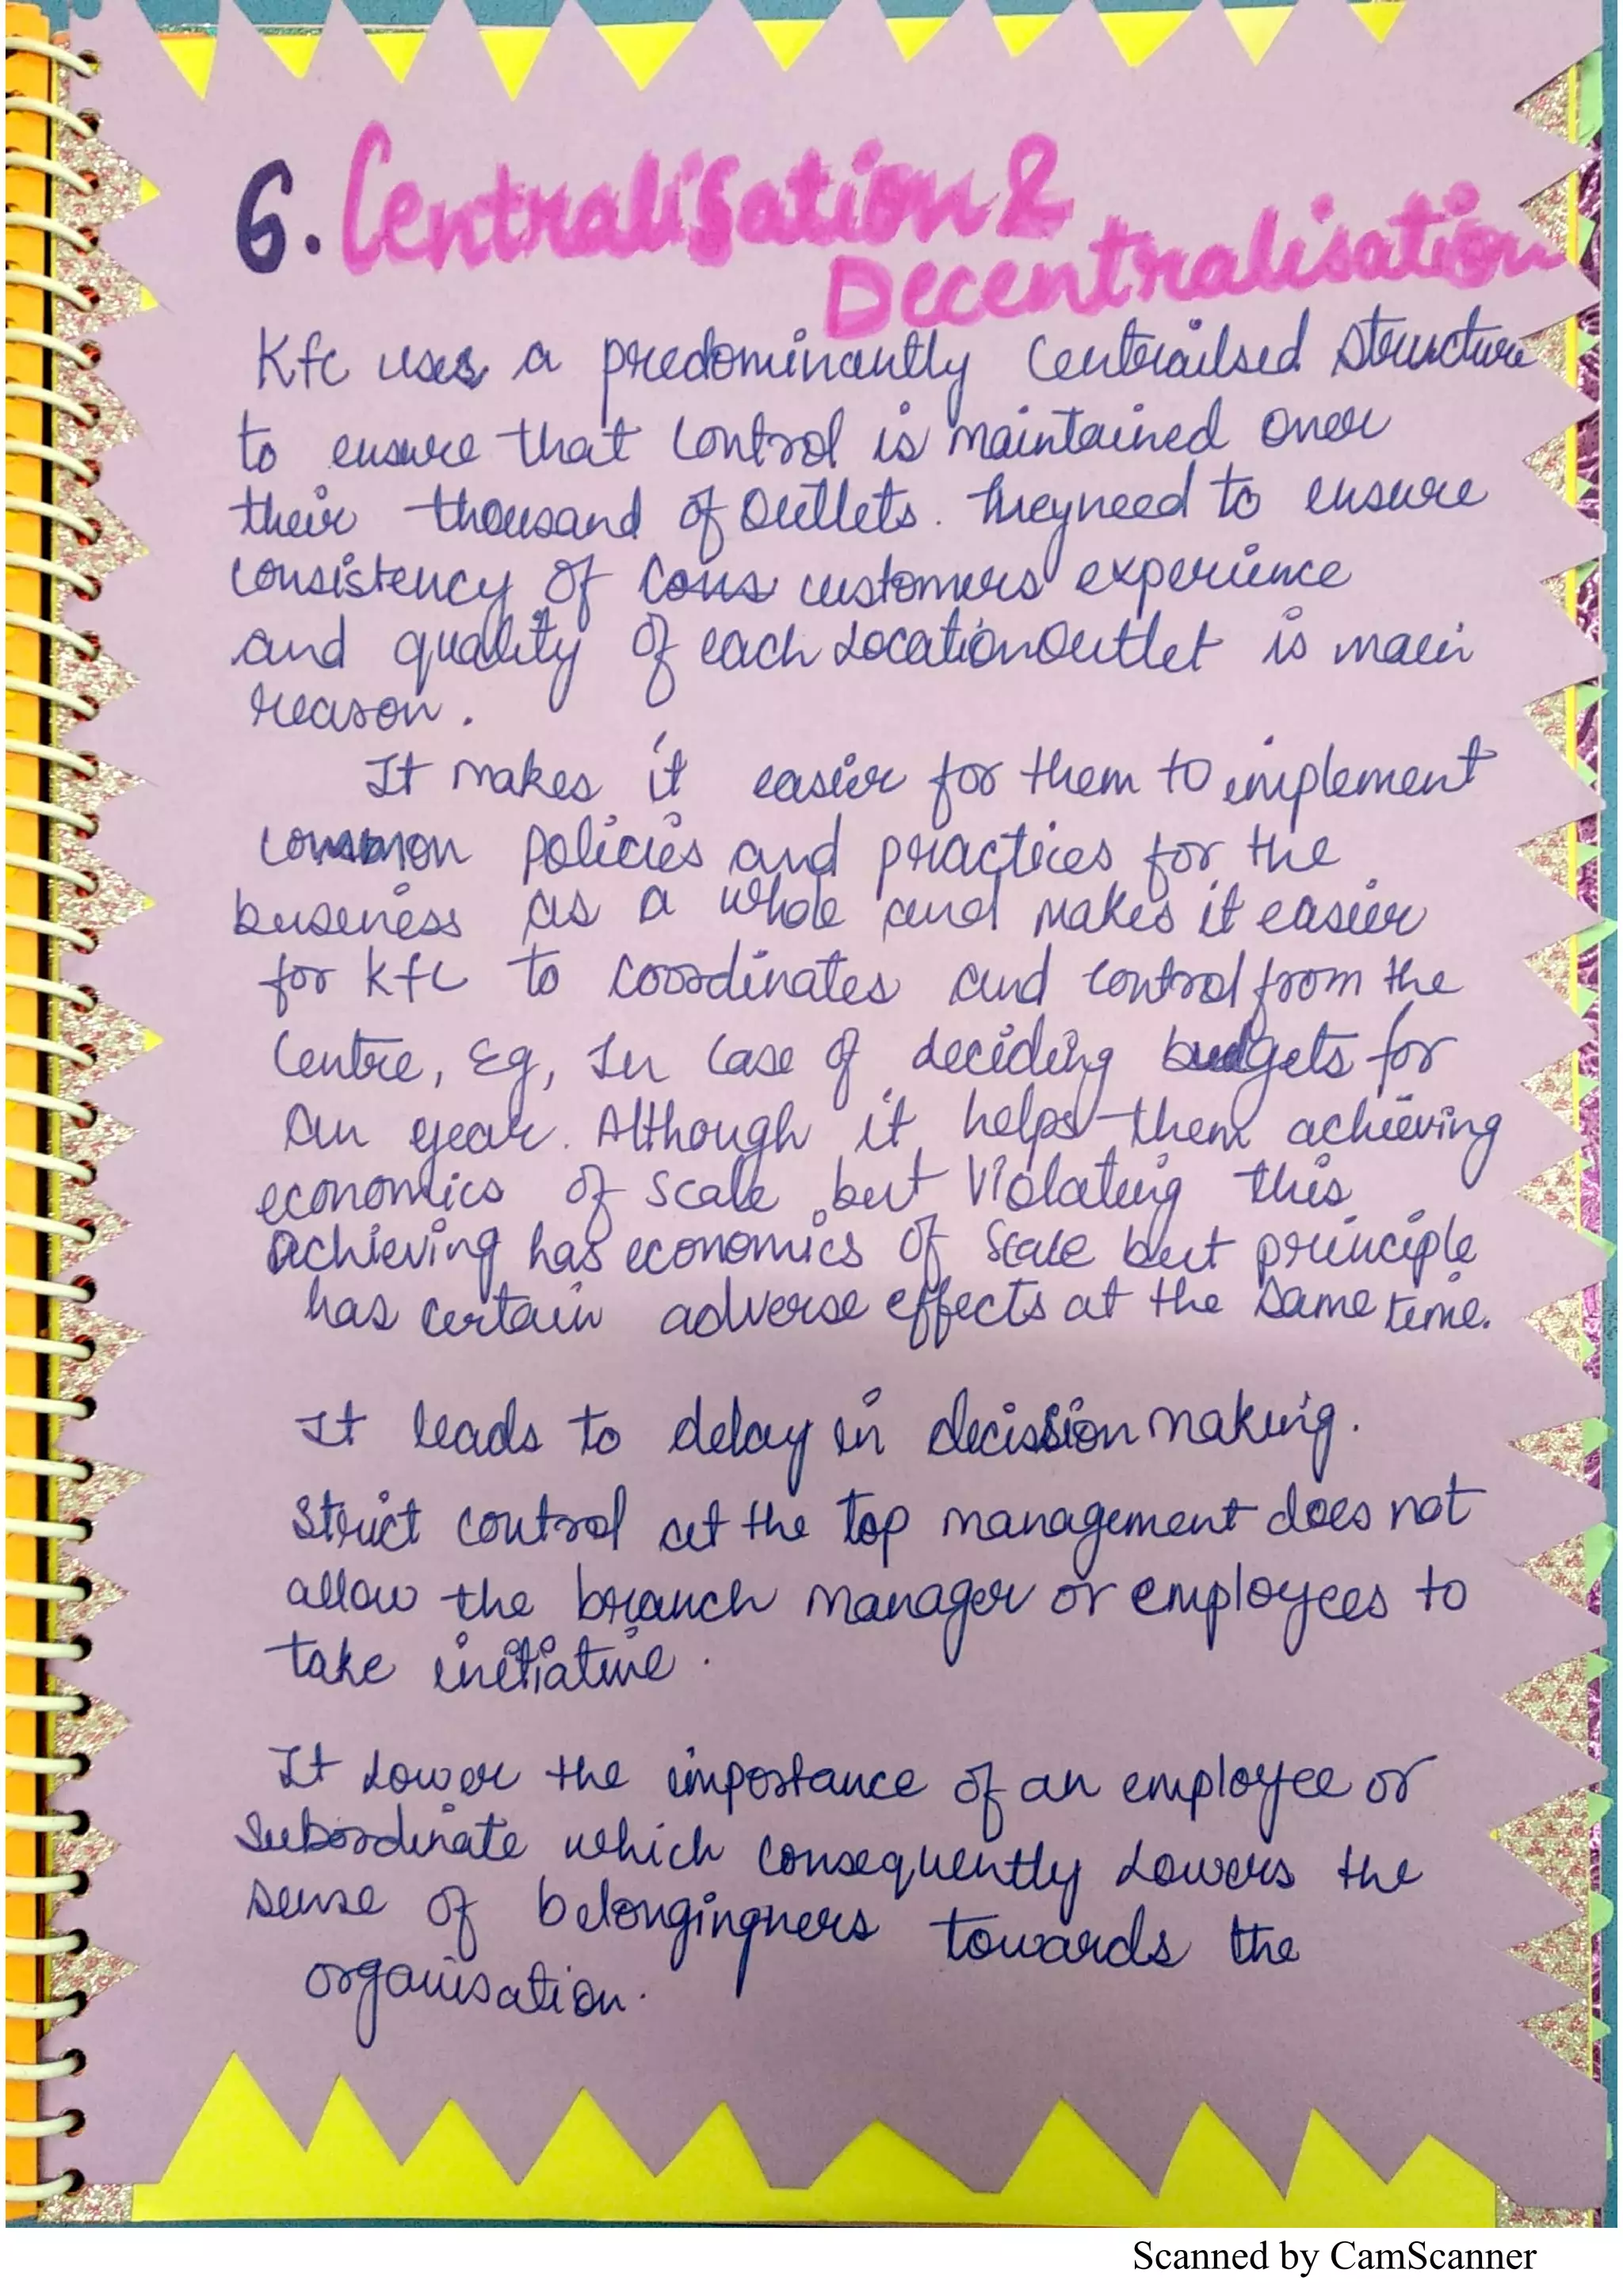 6. Centralisation &
Decentralisation
Kfc uses a predominantly Centrailsed structure
to ensure that control is maintained over
their thousand of outlets. They need to ensure
consistency of Cons customers experience
and quality of each Location Outlet is main
reason.
It makes it easier for them to implement
common policies and practices for the
business as a whole and makes it easier
for kfc to coordinates and control from the
Centre, Eg, In case of deciding budgets for
an year. Although it helps them achieving
economics of scale but violating this
Achieving has economics of scale but principle
has certain adverse effects at the same time.
It leads to delay in decission making.
Strict control at the top management does not
allow the branch manager or employees to
take initiative.
It Lower the importance of an employee or
subordinate which consequently Lowers the
sense of belongingners towards the
organisation.
Scanned by CamScanner